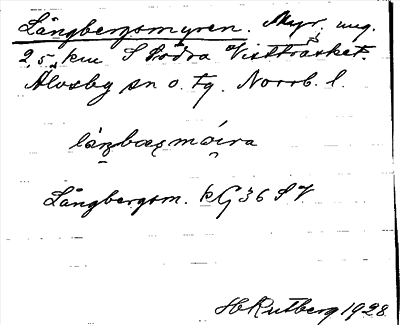 Långbergsmyren. Myr, ung.
2,5 km S Södra Vistträsket.
Älvsby sn o. tg. Norrb. l.
Långbergsm. kG 36 SV.
HRutberg 1928